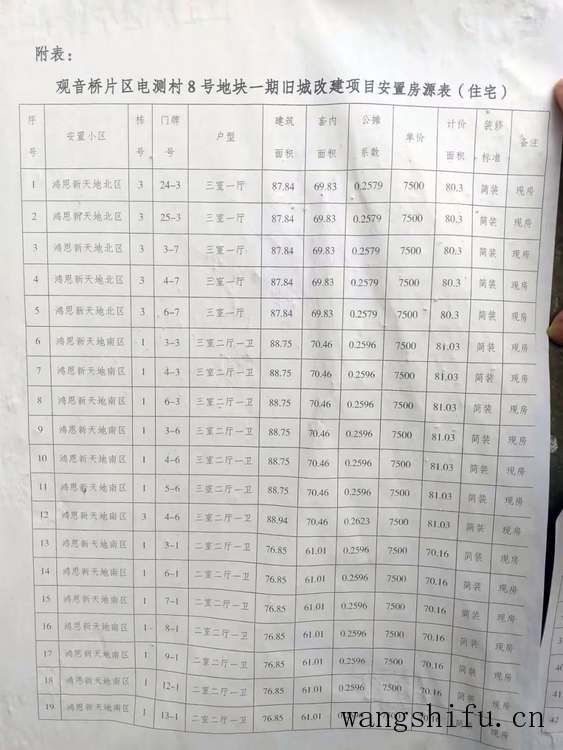 附表：
观音桥片区电测村8号地块一期旧城改建项目安置房源表（住宅）
序号 安置小区 栋号 门牌号 户型 建筑面积 套内面积 公摊系数 单价 计价面积 装修标准 备注
1 鸿恩新天地北区 3 24-3 三室一厅 87.84 69.83 0.2579 7500 80.3 简装 现房
2 鸿恩新天地北区 3 25-3 三室一厅 87.84 69.83 0.2579 7500 80.3 简装 现房
3 鸿恩新天地北区 3 3-7 三室一厅 87.84 69.83 0.2579 7500 80.3 简装 现房
4 鸿恩新天地北区 3 4-7 三室一厅 87.84 69.83 0.2579 7500 80.3 简装 现房
5 鸿恩新天地北区 3 6-7 三室一厅 87.84 69.83 0.2579 7500 80.3 简装 现房
6 鸿恩新天地南区 1 3-3 三室二厅一卫 88.75 70.46 0.2596 7500 81.03 简装 现房
7 鸿恩新天地南区 1 4-3 三室二厅一卫 88.75 70.46 0.2596 7500 81.03 简装 现房
8 鸿恩新天地南区 1 6-3 三室二厅一卫 88.75 70.46 0.2596 7500 81.03 简装 现房
9 鸿恩新天地南区 1 3-6 三室二厅一卫 88.75 70.46 0.2596 7500 81.03 简装 现房
10 鸿恩新天地南区 1 4-6 三室二厅一卫 88.75 70.46 0.2596 7500 81.03 简装 现房
11 鸿恩新天地南区 1 5-6 三室二厅一卫 88.75 70.46 0.2596 7500 81.03 简装 现房
12 鸿恩新天地南区 3 4-6 三室二厅一卫 88.94 70.46 0.2623 7500 81.03 简装 现房
13 鸿恩新天地南区 1 3-1 二室二厅一卫 76.85 61.01 0.2596 7500 70.16 简装 现房
14 鸿恩新天地南区 1 6-1 二室二厅一卫 76.85 61.01 0.2596 7500 70.16 简装 现房
15 鸿恩新天地南区 1 7-1 二室二厅一卫 76.85 61.01 0.2596 7500 70.16 简装 现房
16 鸿恩新天地南区 1 8-1 二室二厅一卫 76.85 61.01 0.2596 7500 70.16 简装 现房
17 鸿恩新天地南区 1 9-1 二室二厅一卫 76.85 61.01 0.2596 7500 70.16 简装 现房
18 鸿恩新天地南区 1 12-1 二室二厅一卫 76.85 61.01 0.2596 7500 70.16 简装 现房
19 鸿恩新天地南区 1 13-1 二室二厅一卫 76.85 61.01
wangshifu.cn